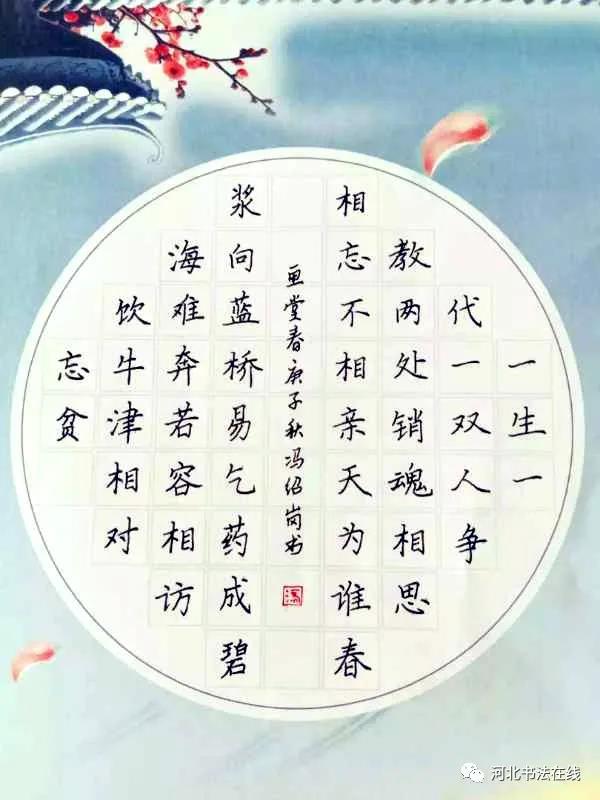 一生一
代一双人争
教两处销魂相思
相忘不相亲天为谁春
画堂春庚子秋冯绍岗书
浆向蓝桥易乞药成碧
海难奔若容相访
饮牛津相对
忘贫
河北书法在线